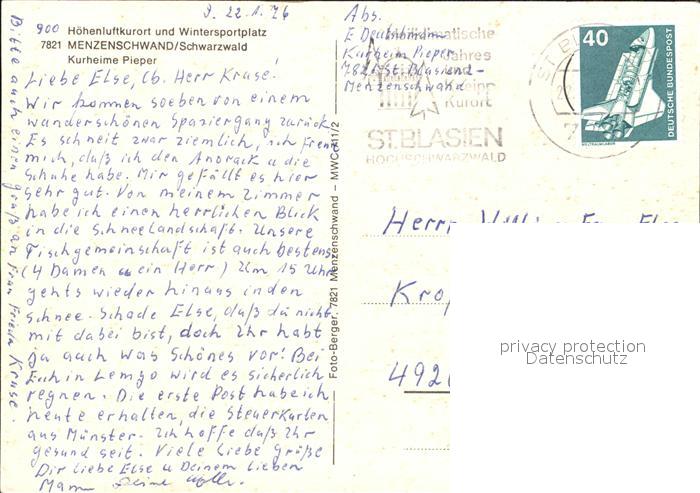 9. 22.1.76
900 Höhenluftkurort und Wintersportplatz
7821 MENZENSCHWAND/Schwarzwald
Kurheime Pieper
Liebe Else, lb. Herr Kruse!
Wir kommen soeben von einem
wunderschönen Spaziergang zurück.
Es schneit zwar ziemlich, ich freu
mich, daß ich den Anorack u die
Schuhe habe. Mir gefällt es hier
sehr gut. Von meinem Zimmer
habe ich einen herrlichen Blick
in die Schneelandschaft. Unsere
Tischgemeinschaft ist auch bestens
(4 Damen u ein Herr) Um 15 Uhr
gehts wieder hinaus in den
Schnee. Schade Else, daß du nicht
mit dabei bist, doch Ihr habt
ja auch was Schönes vor! Bei
Euch in Lemgo wird es sicherlich
regnen. Die erste Post habe ich
heute erhalten, die Steuerkarten
aus Münster. Ich hoffe daß Ihr
gesund seit. Viele liebe Grüße
Dir liebe Else u Deinem lieben
Mann Deine
Bitte auch einen Gruß an Frau Frieda Kruse.
Foto-Berger, 7821 Menzenschwand – MWC 411/2
Abs.
E
Kurheim Pieper
7821 St. Blasien-
Menzenschwand
heilklimatische
Jahres
Kneipp
Kurort
ST. BLASIEN
HOCHSCHWARZWALD
ST BL
40
DEUTSCHE BUNDESPOST
WELTRAUMLABOR
Herrn
Kro
492
privacy protection
Datenschutz